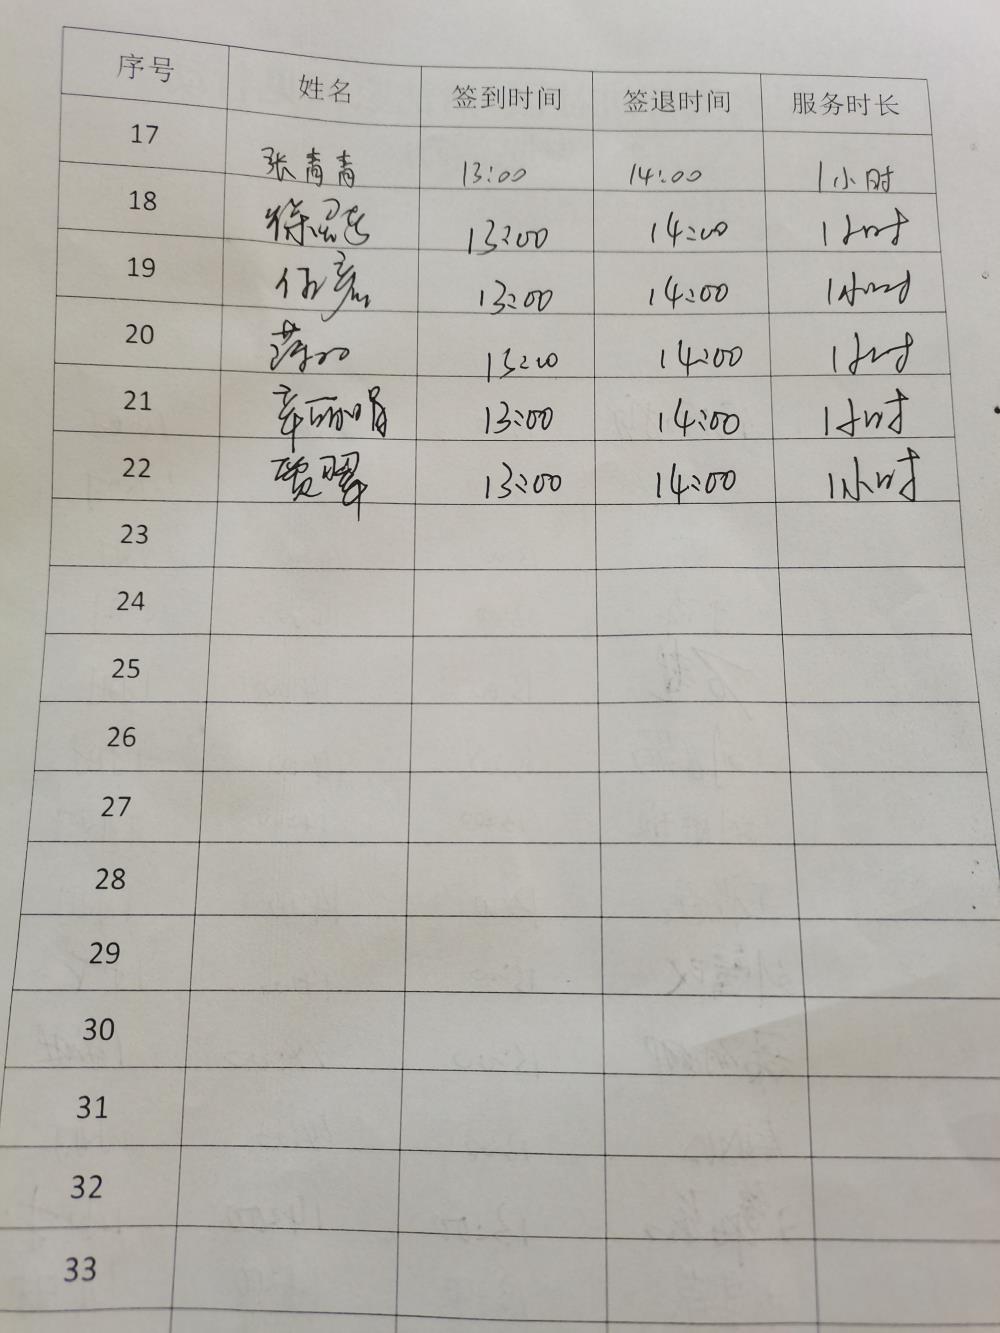 序号 姓名 签到时间 签退时间 服务时长
17 张青青 13:00 14:00 1小时
18 13:00 14:00 1小时
19 13:00 14:00 1小时
20 13:00 14:00 1小时
21 辛丽娟 13:00 14:00 1小时
22 13:00 14:00 1小时
23
24
25
26
27
28
29
30
31
32
33